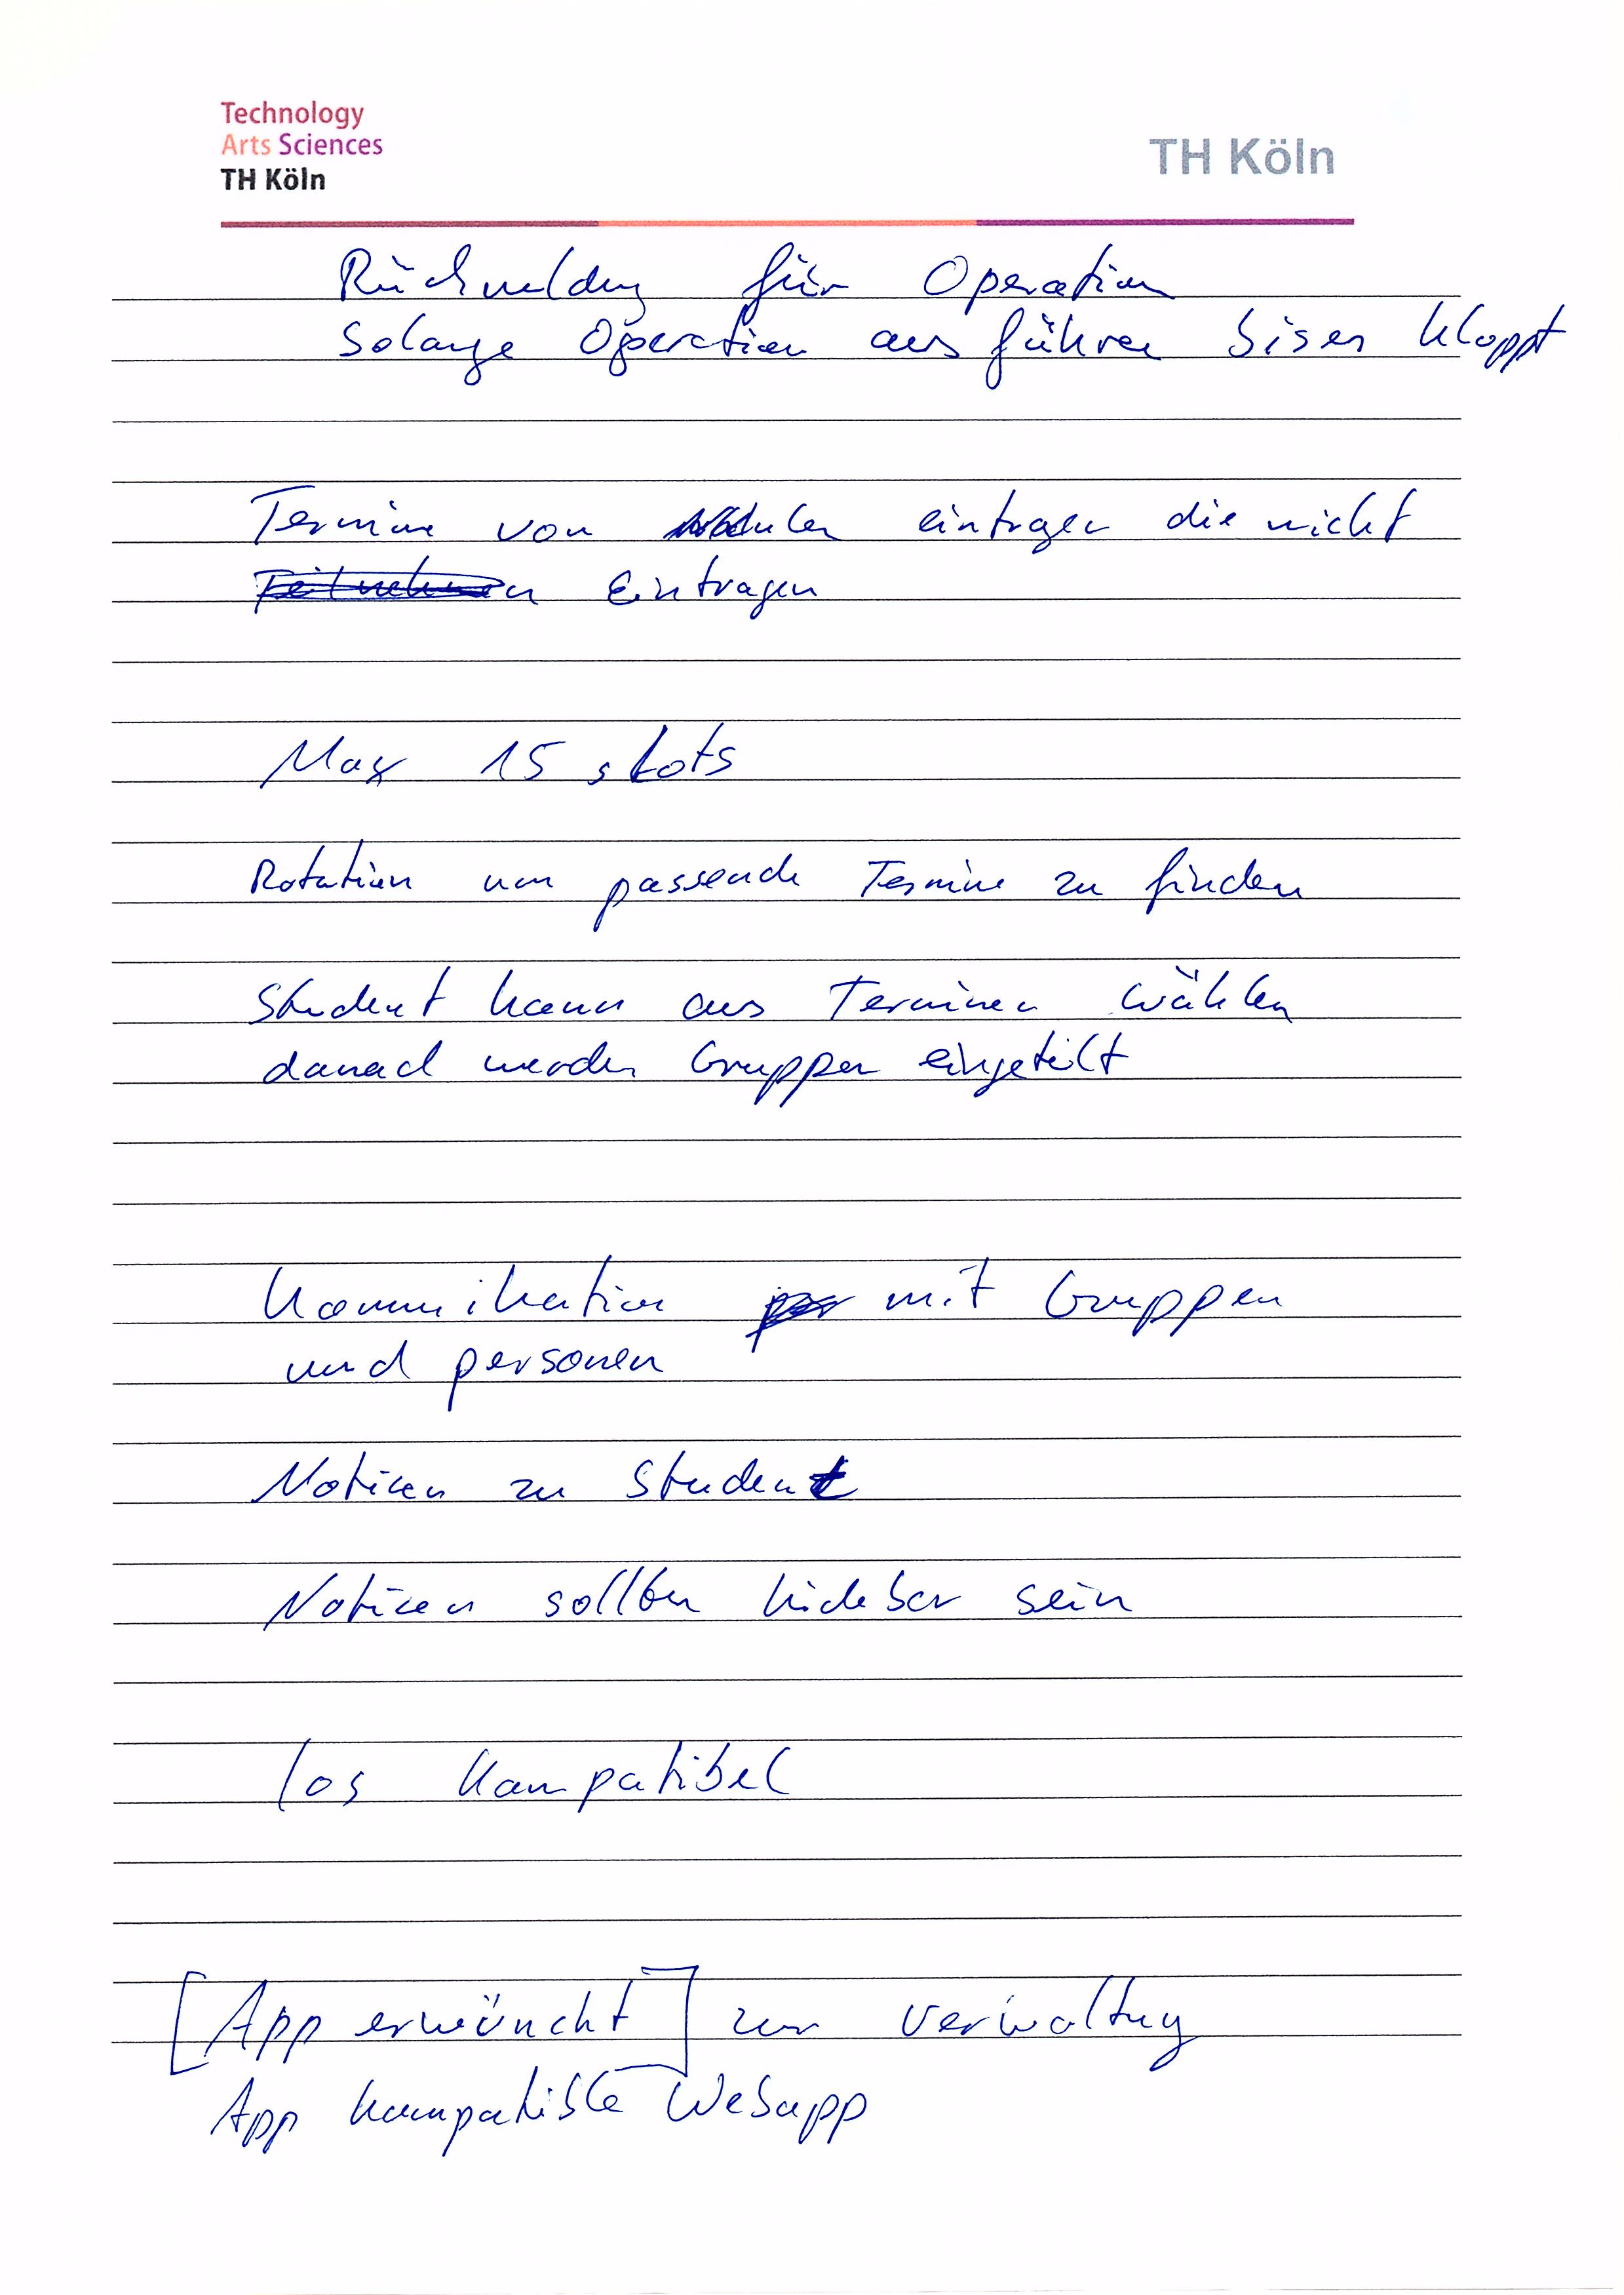 Technology
Arts Sciences
TH Köln
TH Köln
Rückmeldung für Operation
Solange Operation ausführen bis es kloppt
Termine von Modulen eintragen die nicht
Eintragen
Max 15 slots
Rotation um passende Termine zu finden
Student kann aus Terminen wählen
danach werden Gruppen eingeteilt
Kommunikation mit Gruppen
und personen
Notizen zu Student
Notizen sollten hidebar sein
Ios Kompatibel
[App erwüncht] zur Verwaltung
App kompatible Webapp